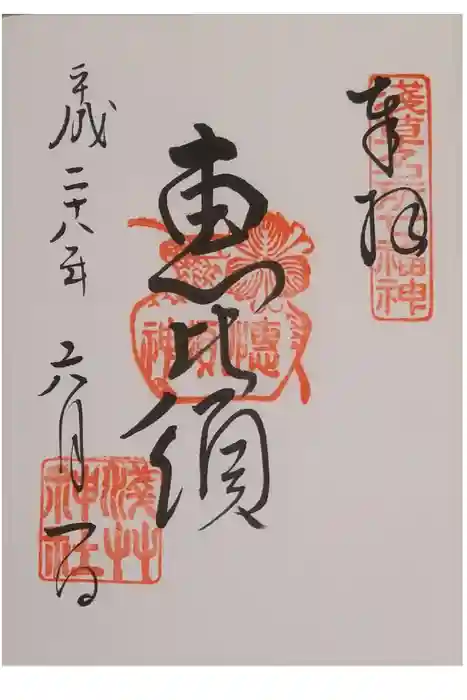 奉拝
淺草名所七福神
恵比須
恵比須神
平成二十八年六月一日
淺草神社